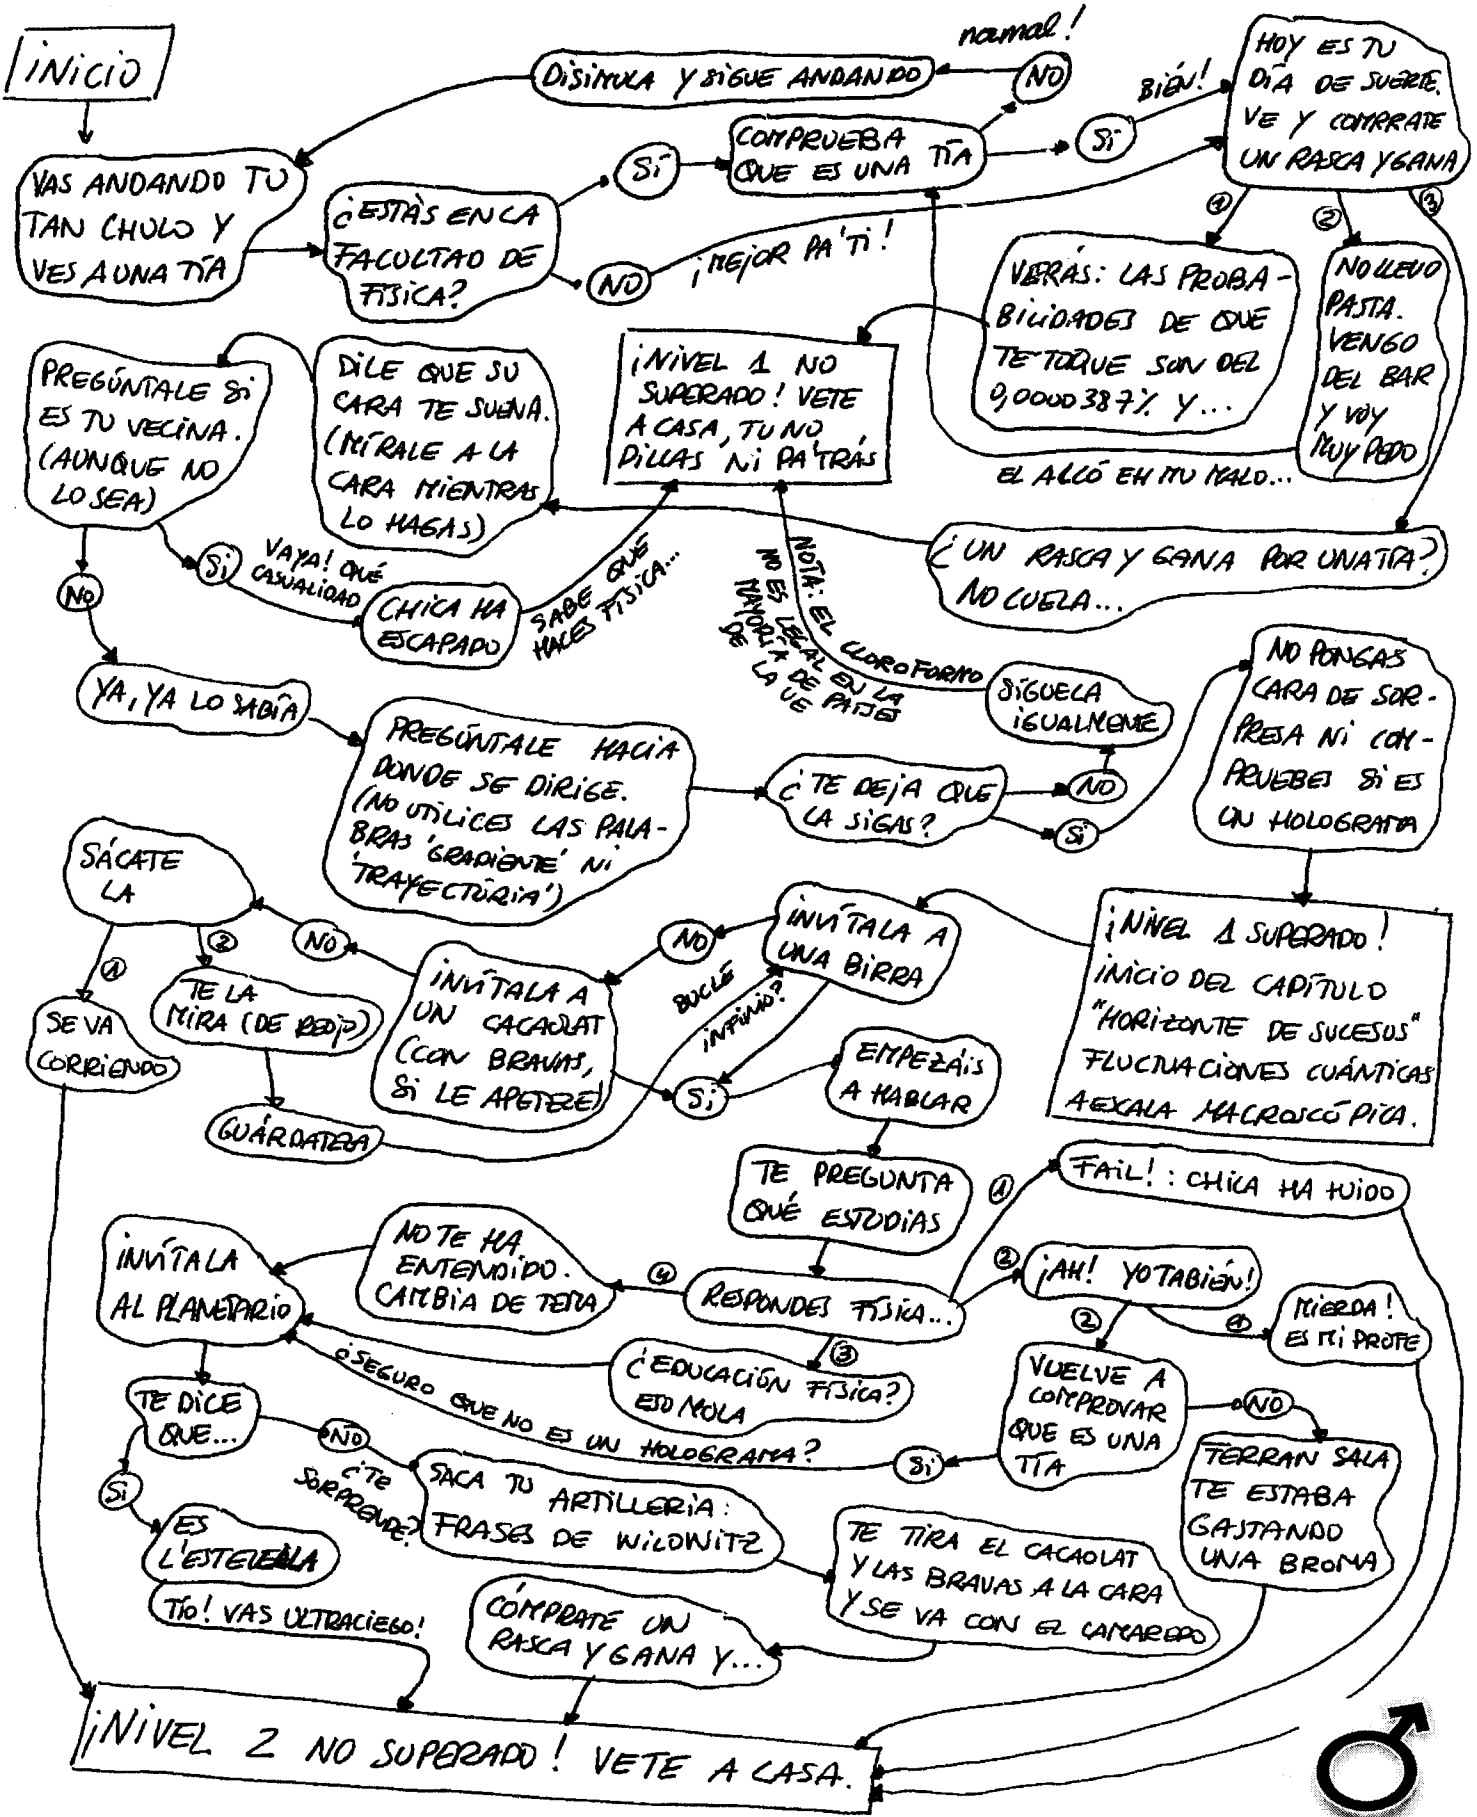 INICIO
VAS ANDANDO TU
TAN CHULO Y
VES A UNA TÍA
DISIMULA Y SIGUE ANDANDO
normal!
NO
¿ESTÀS EN LA
FACULTAD DE
FÍSICA?
SÍ
NO
COMPRUEBA
QUE ES UNA TÍA
Sí
BIÉN!
¡MEJOR PA'TI!
HOY ES TU
DÍA DE SUERTE.
VE Y COMPRATE
UN RASCA Y GANA
①
②
③
VERÁS: LAS PROBA-
BILIDADES DE QUE
TE TOQUE SON DEL
0,0000387% Y...
NO LLEVO
PASTA.
VENGO
DEL BAR
Y VOY
MUY PEDO
EL ALCÓ EH MU MALO...
¿UN RASCA Y GANA POR UNA TÍA?
NO CUELA...
¡NIVEL 1 NO
SUPERADO! VETE
A CASA, TU NO
PILLAS NI PA'TRÁS
DILE QUE SU
CARA TE SUENA.
(MÍRALE A LA
CARA MIENTRAS
LO HAGAS)
PREGÚNTALE SI
ES TU VECINA.
(AUNQUE NO
LO SEA)
NO
Si
VAYA! QUÉ
CASUALIDAD
CHICA HA
ESCAPADO
SABE QUE
HACES FÍSICA...
YA, YA LO SABÍA
PREGÚNTALE HACIA
DONDE SE DIRIGE.
(NO UTILICES LAS PALA-
BRAS 'GRADIENTE' NI
'TRAYECTÒRIA')
¿TE DEJA QUE
LA SIGAS?
NO
Si
SÍGUELA
IGUALMENTE
NOTA: EL CLOROFORMO
NO ES LEGAL EN LA
MAYORÍA DE PAISES
DE LA UE
NO PONGAS
CARA DE SOR-
PRESA NI COM-
PRUEBES SI ES
UN HOLOGRAMA
¡NIVEL 1 SUPERADO!
INICIO DEL CAPÍTULO
"HORIZONTE DE SUCESOS"
FLUCTUACIONES CUÁNTICAS
A EXALA MACROSCÓPICA.
INVÍTALA A
UNA BIRRA
NO
INVÍTALA A
UN CACAOLAT
(CON BRAVAS,
SI LE APETECE)
NO
Si
SÁCATE
LA
①
②
SE VA
CORRIENDO
TE LA
MIRA (DE REOJO)
GUÁRDATELA
BUCLE
INFINIO?
EMPEZÁIS
A HABLAR
TE PREGUNTA
QUÉ ESTUDIAS
RESPONDES FÍSICA...
①
②
③
④
FAIL!: CHICA HA HUIDO
¡AH! YO TABIÉN!
①
②
MIERDA!
ES MI PROFE
VUELVE A
COMPROVAR
QUE ES UNA
TÍA
NO
Si
TERRAN SALA
TE ESTABA
GASTANDO
UNA BROMA
¿SEGURO QUE NO ES UN HOLOGRAMA?
¿EDUCACIÓN FÍSICA?
ESO MOLA
NO TE HA
ENTENDIDO.
CAMBIA DE TEMA
INVÍTALA
AL PLANETARIO
TE DICE
QUE...
Si
NO
¿TE
SORPRENDE?
ES
L'ESTELELLA
TÍO! VAS ULTRACIEGO!
SACA TU ARTILLERIA:
FRASES DE WILOWITZ
TE TIRA EL CACAOLAT
Y LAS BRAVAS A LA CARA
Y SE VA CON EL CAMARERO
CÓMPRATE UN
RASCA Y GANA Y...
¡NIVEL 2 NO SUPERADO! VETE A CASA.